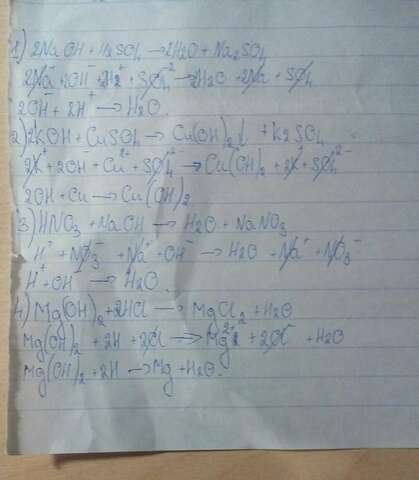 1) 2NaOH + H2SO4 → 2H2O + Na2SO4
2Na⁻ + 2OH⁻ + 2H⁺ + SO4⁻² → 2H2O + 2Na + SO4
2OH⁻ + 2H⁺ → H2O.
2) 2KOH + CuSO4 → Cu(OH)2↓ + K2SO4
2K⁺ + 2OH⁻ + Cu²⁺ + SO4²⁻ → Cu(OH)2 + 2K⁺ + SO4²⁻
2OH + Cu → Cu(OH)2
3) HNO3 + NaOH → H2O + NaNO3
H⁺ + NO3⁻ + Na⁺ + OH⁻ → H2O + Na⁺ + NO3⁻
H⁺ + OH⁻ → H2O.
4) Mg(OH)2 + 2HCl → MgCl2 + H2O
Mg(OH)2 + 2H + 2Cl → Mg²⁺ + 2Cl⁻ + H2O
Mg(OH)2 + 2H → Mg + H2O.